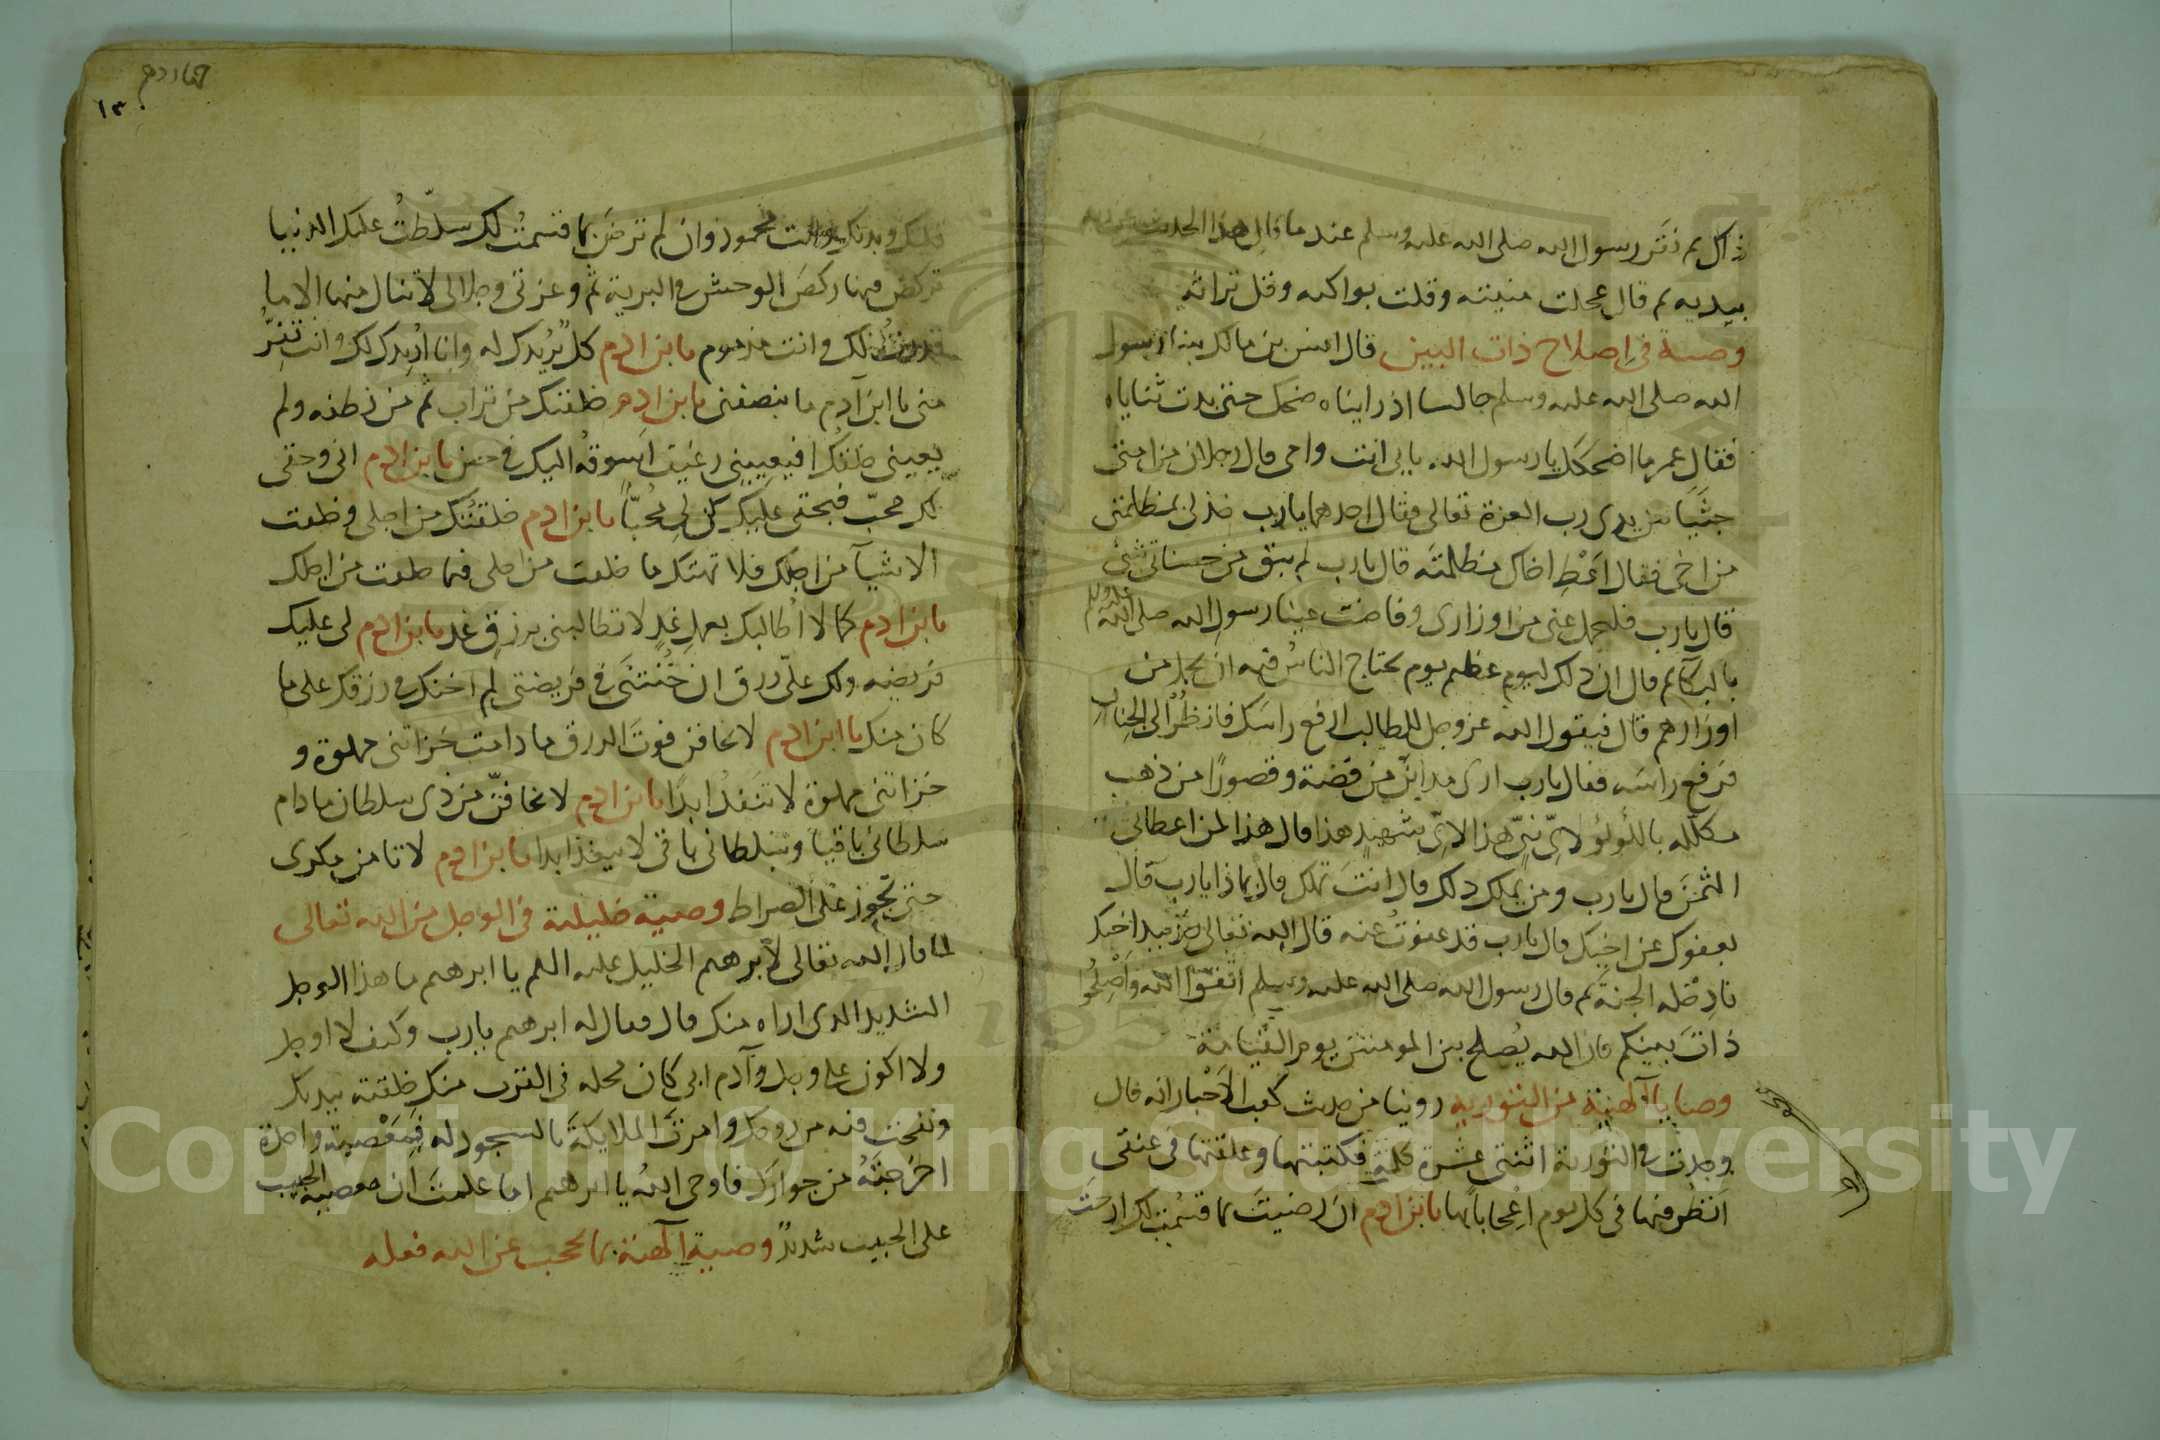 ذاك ثم نقر رسول الله صلى الله عليه وسلم عند ما قال هذا الحديث
بيديه ثم قال عجلت منيته وقلت بواكيه وقل تراثه
وصية في إصلاح ذات البين قال انس بن مالك بينا رسول
الله صلى الله عليه وسلم جالسا اذ رايناه ضحك حتى بدت ثناياه
فقال عمر ما اضحكك يا رسول الله بابي انت وامي قال رجلان من امتي
جثيا بين يدي رب العزة تعالى فقال احدهما يا رب خذ لي بمظلمتي
من اخي فقال اعط اخاك مظلمته قال يا رب لم يبق من حسناتي شئ
قال يا رب فليحمل عني من اوزاري وفاضت عينا رسول الله صلى الله عليه وسلم
بالبكآ ثم قال ان ذلك ليوم عظيم يوم يحتاج الناسُ فيه ان يحمل من
اوزارهم قال فيقول الله عز وجل للطالب ارفع راسك فانظُرْ الى الجنان
فرفع راسه فقال يا رب ارى مداين من فضة وقصورًا من ذهب
مكلله باللؤلؤ لاي نبيّ هذا لاي شهيدٍ هذا قال هذا لمن اعطاني
الثمن قال يا رب ومن يملك ذلك قال انتَ تملك قال بماذا يا رب قال
بعفوك عن اخيك قال يا رب قد عفوتُ عنه قال الله تعالى خذ بيد اخيك
فادخله الجنة ثم قال رسول الله صلى الله عليه وسلم اتقوا الله وأصلحوا
ذاتَ بينكم فان الله يُصلح بين المومنين يوم القيامة
وصايا الهية من التورية روينا من حديث كعب الأحبار انه قال
وجدت في التورية اثنتي عشرة كلمة فكتبتها وعلقتها في عنقي
انظر فيها في كل يوم اعجابا بها يا بن ادم ان رضيتَ بما قسمت لك ارحت
قلبك وبدنك وانت محمود وان لم ترضَ بما قسمتُ لك سلّطتُ عليك الدنيا
تركض فيها ركضَ الوحش في البرية ثم وعزتي وجلالي لا تنال منها الا ما
قدرتُ لك وانت مذموم يا بن ادم كلٌ يُريدك له وانا اُريدك لك وانت تفرُّ
مني يا ابن آدم ما تنصفني يا بن ادم خلقتك من تراب ثم من نطفه ولم
يعيني خلقُك افيعييني رغيف اسوقُه اليك في حين يا بن ادم اني وحقي
لك محبّ فبحقي عليك كن لي مُحبًّا يا بن ادم خلقتُك من اجلي وخلقت
الاشيآ من اجلك فلا تهتك ما خلقت من اجلي فيما خلقت من اجلك
يا بن ادم كما لا اُطالبك بعمل غدٍ لا تطالبني برزق غد يا بن ادم لي عليك
فريضه ولك علىّ رزق ان خُنتنى في فريضتى لم اخنك في رزقك على ما
كان منك يا ابن ادم لا تخافن فوتَ الرزق ما دامت خزائني مملوة و
خزائني مملوة لا تنفدُ ابدًا يا بن ادم لا تخافنّ من ذى سلطان ما دام
سلطاني باقيًا وسلطاني باقى لا ينفذ ابدا يا بن ادم لا تامن مكرى
حتى تجوز على الصراط وصية خليلية في الوجل من الله تعالى
لما قال الله تعالى لأبرهيم الخليل عليه السلم يا ابرهيم ما هذا الوجل
الشديد الذى اراه منك قال فقال له ابرهيم يا رب وكيف لا اوجل
ولا اكون على وجل وآدم ابى كان محله في القرب منك خلقته بيدك
ونفخت فيه من روحك وامرتَ الملايكةَ بالسجود له فبمعْصية واحدة
اخرجتَهُ من جوارك فاوحى اللهُ يا ابرهيم اما علمتَ ان معصية الحبيب
على الحبيب شديدٌ وصية الهية بما يحجب عن الله فعله